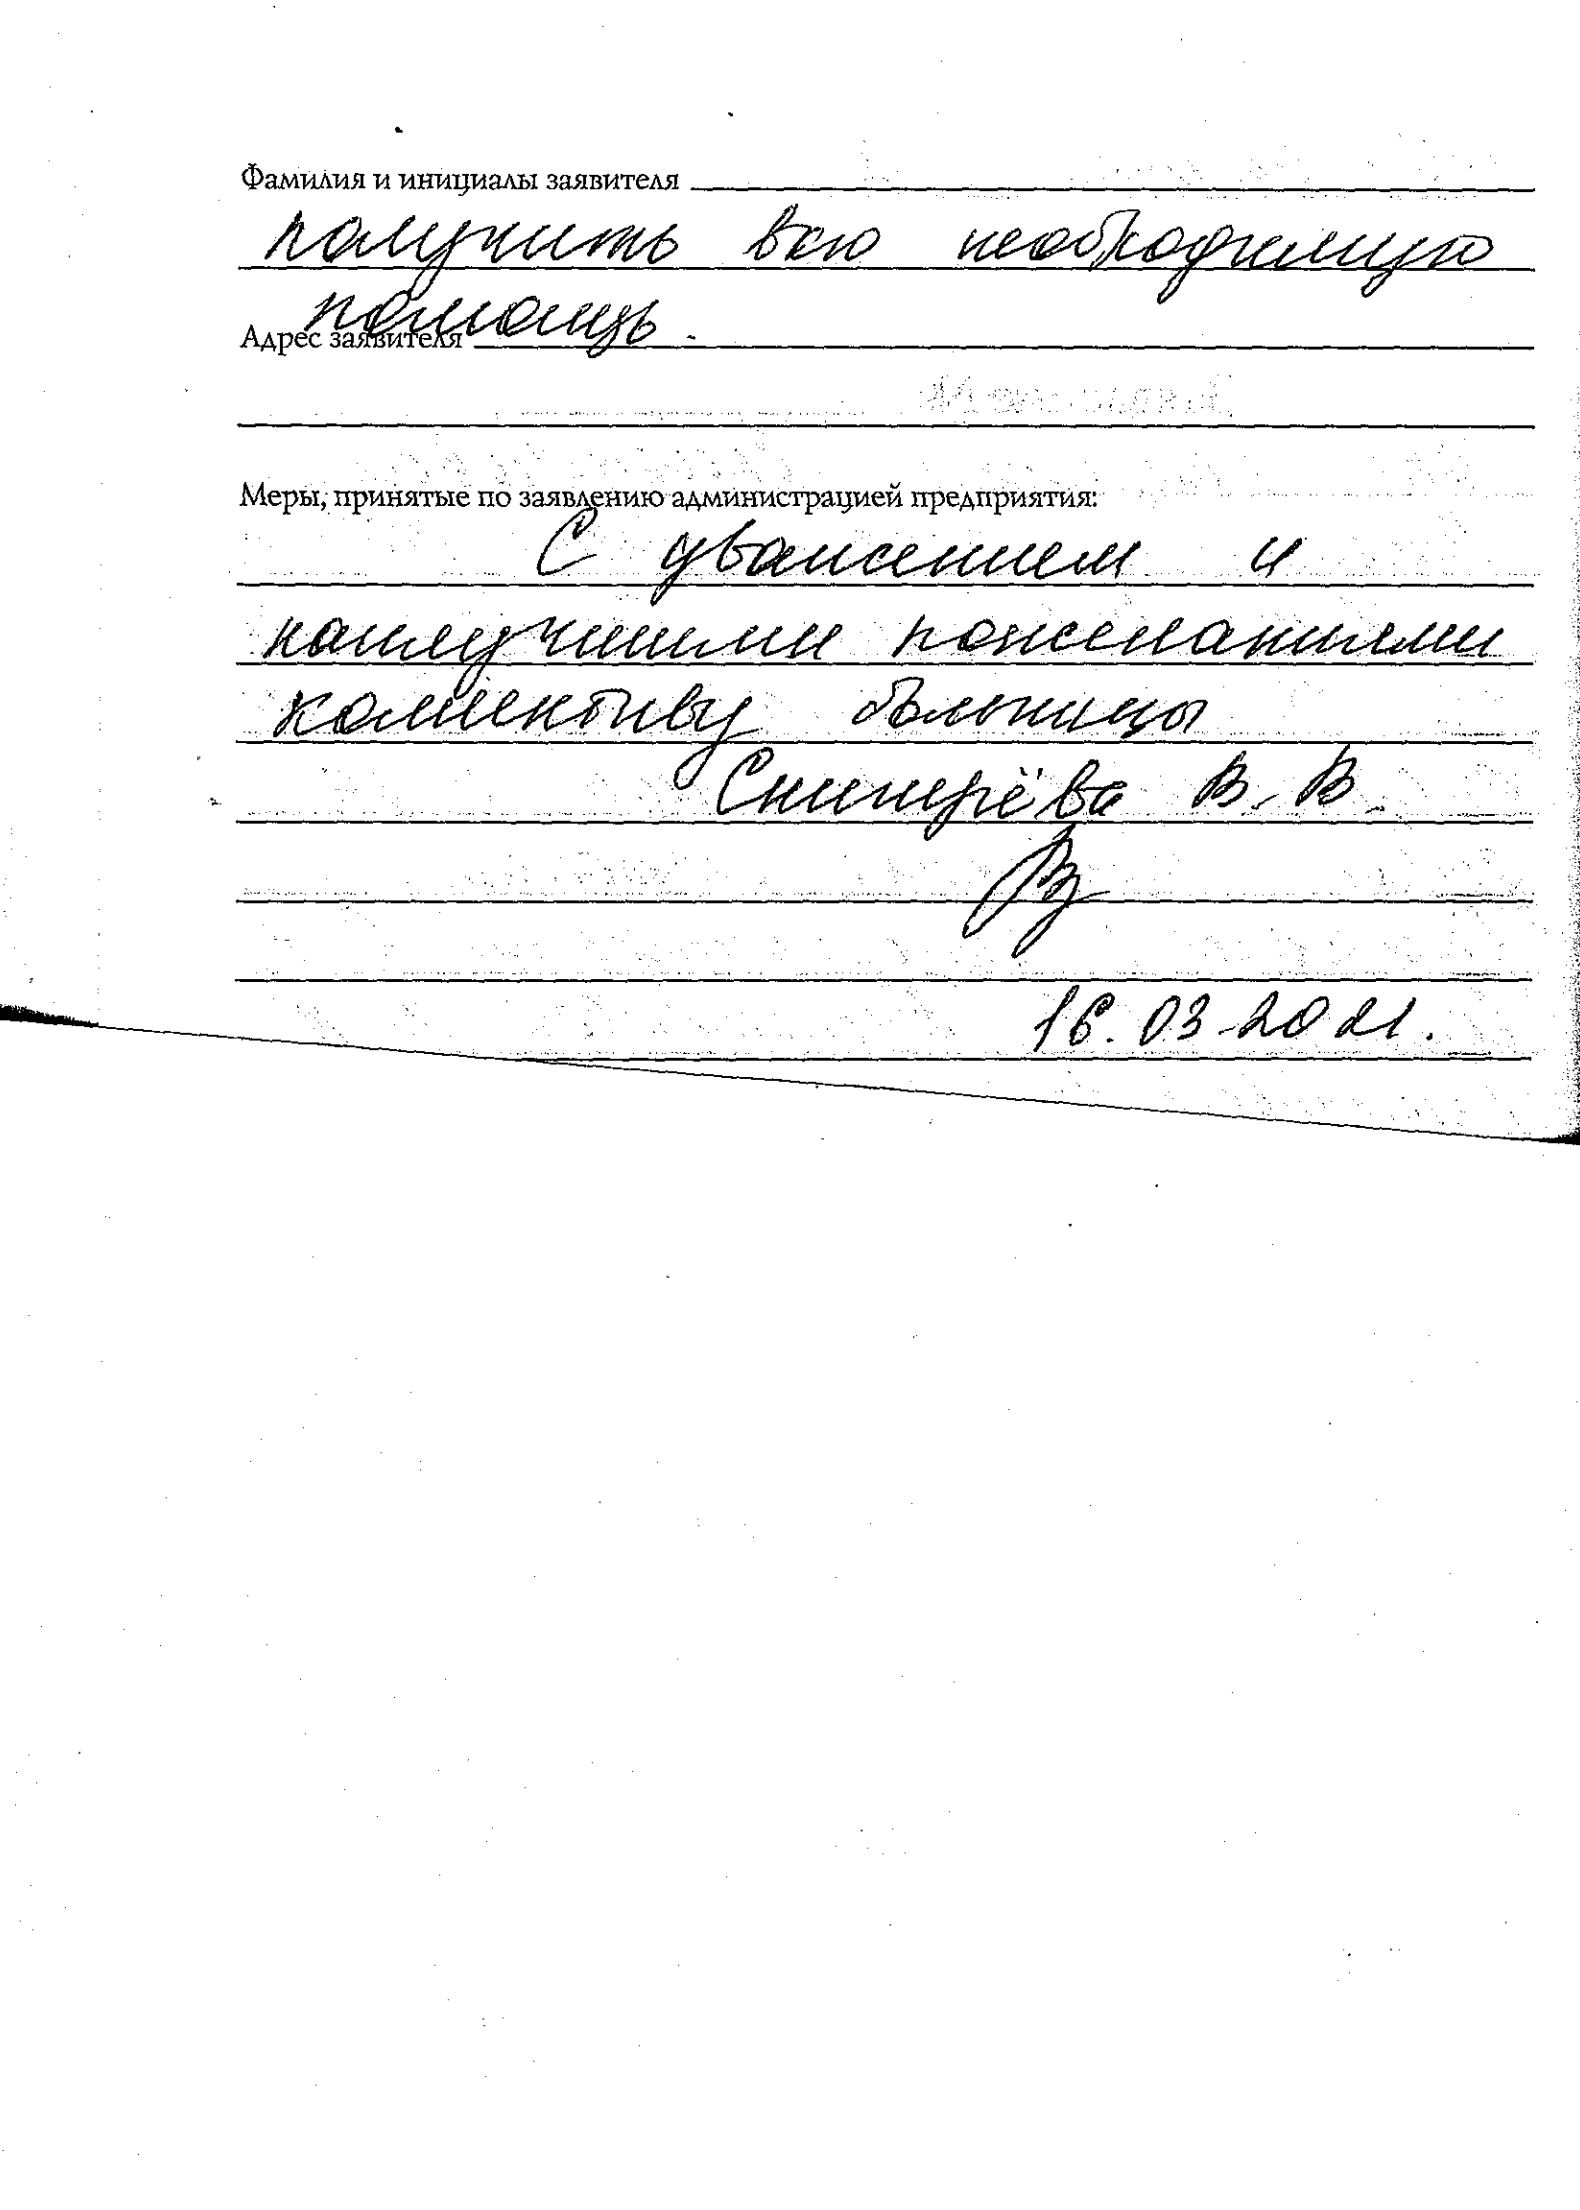 Фамилия и инициалы заявителя
получить всю необходимую
помощь.
Адрес заявителя
Меры, принятые по заявлению администрацией предприятия:
С уважением и
наилучшими пожеланиями
коллективу больницы
В. В.
16.03.2021.